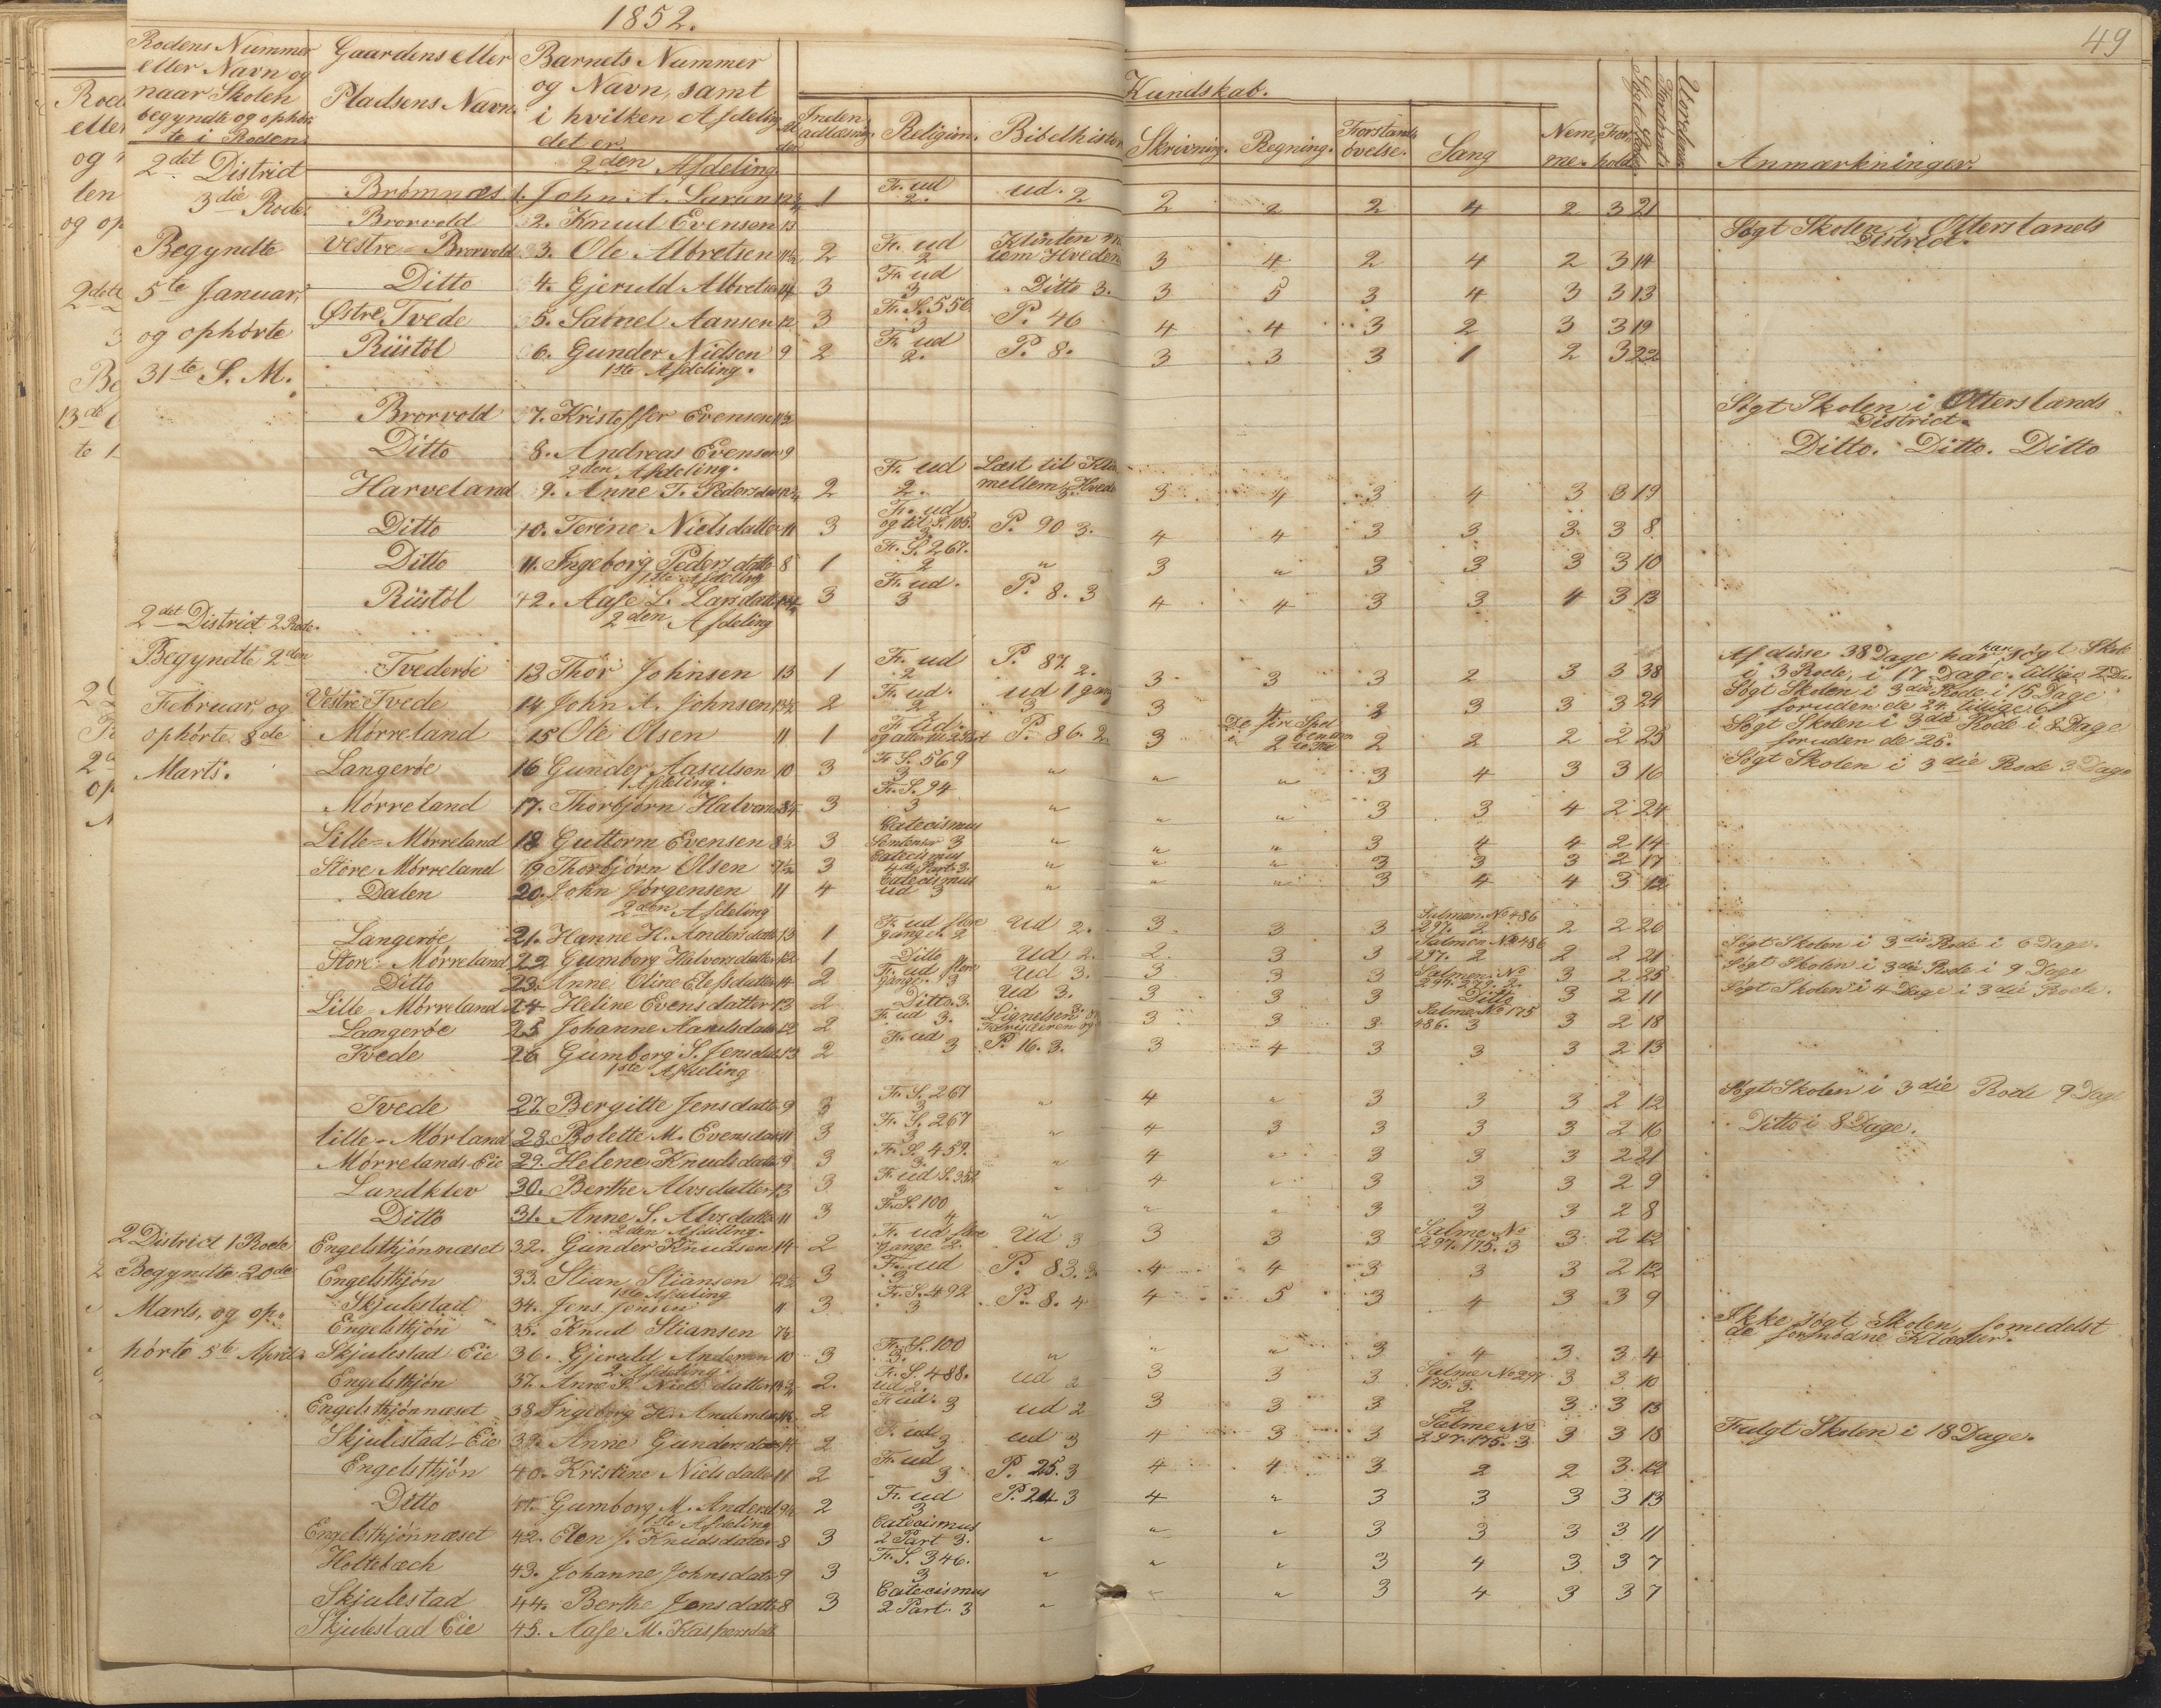 1852.
49
Rodens Nummer eller Navn og naar Skolen begyndte og ophørte i Roden.
Gaardens eller Pladsens Navn.
Barnets Nummer og Navn, samt i hvilken Afdeling det er
Kundskab.
Religion. Bibelhistor Skrivning. Regning. Forstands øvelse. Sang Nemme. Forhold. Anmærkninger.
2det District
3die Rode.
Begyndte
5te Januar,
og ophørte
31te S. M.
2den Afdeling
Brømnæs 1. John A. Larsen 1 Fr. ud 2. ud. 2 2 2 2 4 2 3 21
Brorvold 2. Knud Evensen 13 Søgt Skolen i Otterslands District.
Vestre-Brorvold 3. Ole Albretsen 2 Fr. ud 2 Klinten 3 4 2 4 2 3 14
Ditto 4. Gjeruld Albretsen 14 3 Fr. ud 3 Ditto 3. 3 5 3 4 3 3 13
Østre Tvede 5. Samel Aansen 12 3 Fr. S. 556 3 P. 46 4 4 3 2 3 3 19
Rüstöl 6. Gunder Nielsen 9 2 Fr. ud 2. P. 8. 3 3 3 1 2 3 22
1ste Afdeling.
Brorvold 7. Kristoffer Evensen Søgt Skolen i Otterslands District.
Ditto 8. Andreas Evensen 9 Ditto. Ditto. Ditto
2den Afdeling.
Harveland 9. Anne T. Pedersdatter 2 Fr. ud 2. Læst til Klin mellem Hvede 3 3 4 3 4 3 3 19
Ditto 10. Terine Nielsdatter 11 3 Fr. ud og til S. 105. 3 P. 90 3. 4 4 3 3 3 3 8
Ditto 11. Ingeborg Pedersdatter 8 1 Fr. S. 267. 2 " 3 " 3 3 3 3 10
1ste Afdeling
Rüstöl 12. Aase L. Larsdatter 3 Fr. ud. 3 P. 8. 3 4 4 3 3 4 3 13
2den Afdeling
2det District 2 Rode.
Begyndte 2den
Februar, og
ophørte 8de
Marts.
Tvederøe 13 Thor Johnsen 13 1 Fr. ud 2 P. 87. 2. 3 3 3 2 3 3 38 Af disse 38 Dage har han søgt Skol i 3 Rode, i 17 Dage.
Vestre Tvede 14 John A. Johnsen 2 Fr. ud. 2 ud 1 gang 3 3 4 3 3 3 3 24 Søgt Skolen i 3die Rode i 15 Dage foruden de 24
Mørreland 15 Ole Olsen 11 1 Fr. ud. P. 86. 2 3 2 2 2 2 2 25 Søgt Skolen i 3die Rode i 8 Dage foruden de 25.
Langerøe 16 Gunder Aasulsen 10 3 Fr. S. 569 3 " " " 3 4 3 3 16 Søgt Skolen i 3die Rode 3 Dage
1 Afdeling.
Mørreland 17. Thorbjørn Halvorsen 3 Fr. S. 94 3 " " " 3 3 4 2 24
Lille-Mørreland 18 Guttorm Evensen 8½ 3 Catecismus 3 " " " 3 4 4 2 14
Store Mørreland 19 Thorbjørn Olsen 7½ 3 Catecismus 4de Part 3. " " " 3 3 3 2 17
Dalen 20. John Jørgensen 11 4 Catecismus ud 3 " " " 3 4 4 3 12
2den Afdeling
Langerøe 21. Hanne H. Andersdatter 13 1 Fr. ud flere gange 2 ud 2. 3. 3 3 Salmen No 486 297. 2 2 2 26
Store-Mørreland 22 Gumborg Halvorsdatter 12 1 Ditto ud 2. 2. 3 3 Salmen No 486 297. 2 2 2 21 Søgt Skolen i 3die Rode i 6 Dage.
Ditto 23. Anne Oline Elefsdatter 14 2 Fr. ud flere gange. 3 ud 3. 3 3 3 Salmen No 3 2 25 Søgt Skolen i 3die Rode i 9 Dage
Lille-Mørreland 24 Heline Evensdatter 13 2 Ditto. 3. ud 3. 3 3 3 Ditto 3 2 11 Søgt Skolen i 4 Dage i 3die Rode.
Langerøe 25 Johanne Aasulsdatter 12 2 Fr. ud 3. Lignelsen om Farisæeren og 3 3 3 Salme No 175 486. 3 3 2 18
Tvede 26 Gumborg S. Jensdatter 13 2 Fr. ud 3 P. 16. 3. 3 4 3 3 3 2 13
1ste Afdeling
Tvede 27. Bergitte Jensdatter 9 3 Fr. S. 267 3 " 4 " 3 3 3 2 12 Søgt Skolen i 3die Rode 9 Dage
Lille-Mørland 28. Bolette M. Evensdatter 11 3 Fr. S. 267 3 " 4 3 3 3 3 2 16 Ditto i 8 Dage.
Mørrelands-Eie 29. Helene Knudsdatter 9 3 Fr. S. 459. 3. " 4 " 3 3 3 2 21
Landklev 30. Berthe Alvsdatter 13 3 Fr. ud S. 352 3 " 4 " 3 3 3 2 9
Ditto 31. Anne S. Alvsdatter 11 3 Fr. S. 100 4 " " " 3 3 3 2 8
2den Afdeling.
2 District 1 Rode
Begyndte 20de
Marts, og op-
hørte 5te April.
Engelsthjønnæset 32. Gunder Knudsen 14 2 Fr. ud flere gange 2. ud 3 3 3 3 Salme No 297. 175. 3 3 2 12
Engelsthjøn 33. Stian Stiansen 12½ 3 Fr. ud 3 P. 83. 3 4 4 3 3 3 2 12
1ste Afdeling
Skjulestad 34. Jens Jensen 11 3 Fr. S. 492 3 P. 8. 4 4 5 3 4 3 3 9
Engelsthjøn 35. Knud Stiansen 7½ Ikke søgt Skolen, formedelst de fornødne Klæder.
Skjulestad Eie 36. Gjeruld Andersen 10 3 Fr. S. 100 3. " " " 3 4 3. 3 4
2 Afdeling.
Engelsthjøn 37. Anne P. Nielsdatter 2. Fr. S. 488. ud 2. ud 2 3 3 3 Salme No 297 175. 3. 3 3 10
Engelsthjønnæset 38 Ingeborg H. Andersdatter 2 Fr. ud. 3 ud 2 3 3 3 2 3 3 13
Skjulestad-Eie 39. Anne Gundersdatter 14 2 Fr. ud 3 ud 3 4 3 3 Salme No 297. 175. 3 3 3 18 Fulgt Skolen i 18 Dage.
Engelsthjøn 40. Kristine Nielsdatter 11 2 Fr. ud 3 P. 25. 3 4 4 3 2 2 3. 12
Ditto 41. Gumborg M. Andersd 9½ 2 Fr. ud 3 P. 24. 3 4 " 3 3 3 3 13
1ste Afdeling
Engelsthjønnæset 42. Elen J. Knudsdatter 8 3 Catecismus 2 Part 3. " " " 3 3 3 3 11
Holtebæch 43. Johanne Johnsdatter 9 3 Fr. S. 346. 3 " " " 3 4 3 3 7
Skjulestad 44. Berthe Jensdatter 8 3 Catecismus 2 Part. 3 " " " 3 4 3 3 7
Skjulestad Eie 45. Aase M. Kaspersdatt